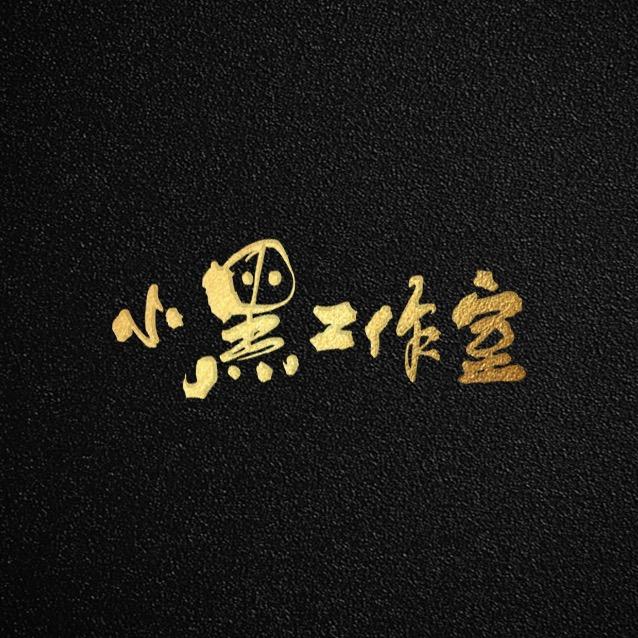 小黑工作室